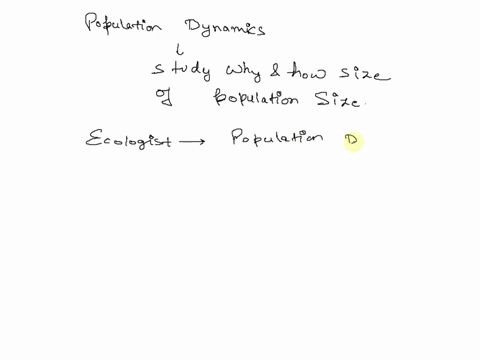 Population Dynamics
↓
study why & how size
of population size.
Ecologist → Population D